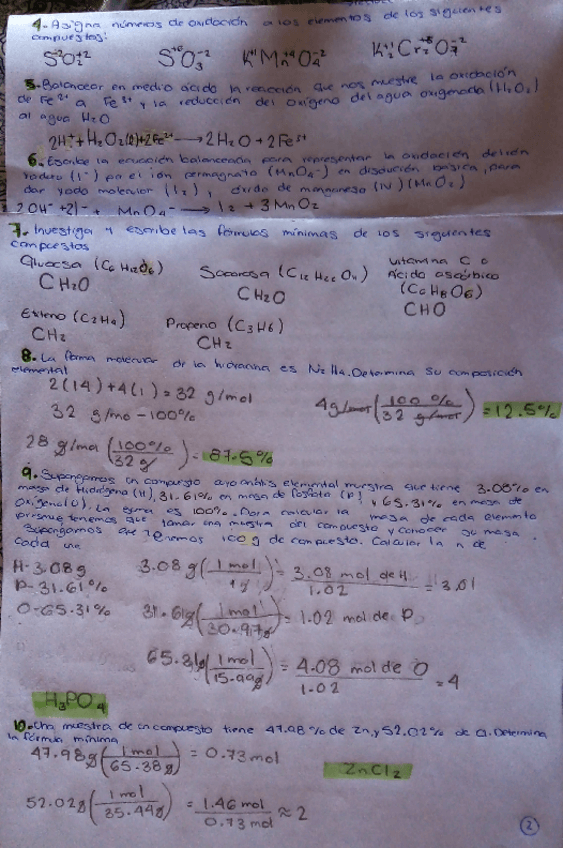 4.-Asigna números de oxidación a los elementos de los siguientes
compuestos:
S⁺²O₂⁻² S⁺⁶O₃⁻² K⁺¹Mn⁺⁴O₄⁻² K₂⁺¹Cr₂⁺⁶O₇⁻²
5.-Balancear en medio ácido la reacción que nos muestre la oxidación
de Fe²⁺ a Fe³⁺ y la reducción del oxígeno del agua oxigenada (H₂O₂)
al agua H₂O
2H⁺+H₂O₂(l)+2Fe²⁺→2H₂O+2Fe³⁺
6.-Escribe la ecuación balanceada para representar la oxidación del ión
yoduro (I⁻) por el ión permagnato (MnO₄⁻) en disolución básica, para
dar yodo molecular (I₂), óxido de manganeso (IV) (MnO₂)
2OH⁻+2I⁻+ MnO₄⁻→I₂+3MnO₂
7.-Investiga y escribe las fórmulas mínimas de los siguentes
compuestos
Glucosa (C₆H₁₂O₆) Sacarosa (C₁₂H₂₂O₁₁) Vitamina C o
Ácido ascórbico
CH₂O CH₂O (C₆H₈O₆)
CHO
Eteno (C₂H₄) Propeno (C₃H₆)
CH₂ CH₂
8.-La forma molecular de la hidracina es N₂H₄. Determina su composición
elemental
2(14)+4(1)=32 g/mol
32 g/mo-100% 4g/mol(100 %/32 g/mol)=12.5%
28 g/mol(100%/32g)=87.5%
9.-Supongamos un compuesto cuyo análisis elemental muestra que tiene 3.08% en
masa de hidrógeno (H), 31.61% en masa de fósforo (P) y 65.31% en masa de
oxígeno(O). La suma es 100%. Para calcular la masa de cada elemento
presente tenemos que tomar una muestra del compuesto y conocer su masa.
Supongamos que tenemos 100g de compuesto. Calcular la n de
cada uno
H-3.08g 3.08g(1mol/1g)=3.08 mol de H/1.02=3.01
P-31.61%
O-65.31% 31.61g(1mol/30.97g)=1.02 mol de P
65.31g(1mol/15.99g)=4.08 mol de O/1.02=4
H₃PO₄
10.-Una muestra de un compuesto tiene 47.98% de Zn, y 52.02% de Cl. Determina
la fórmula mínima
47.98g(1mol/65.38g)=0.73mol
ZnCl₂
52.02g(1mol/35.44g)=1.46mol/0.73mol≈2
2